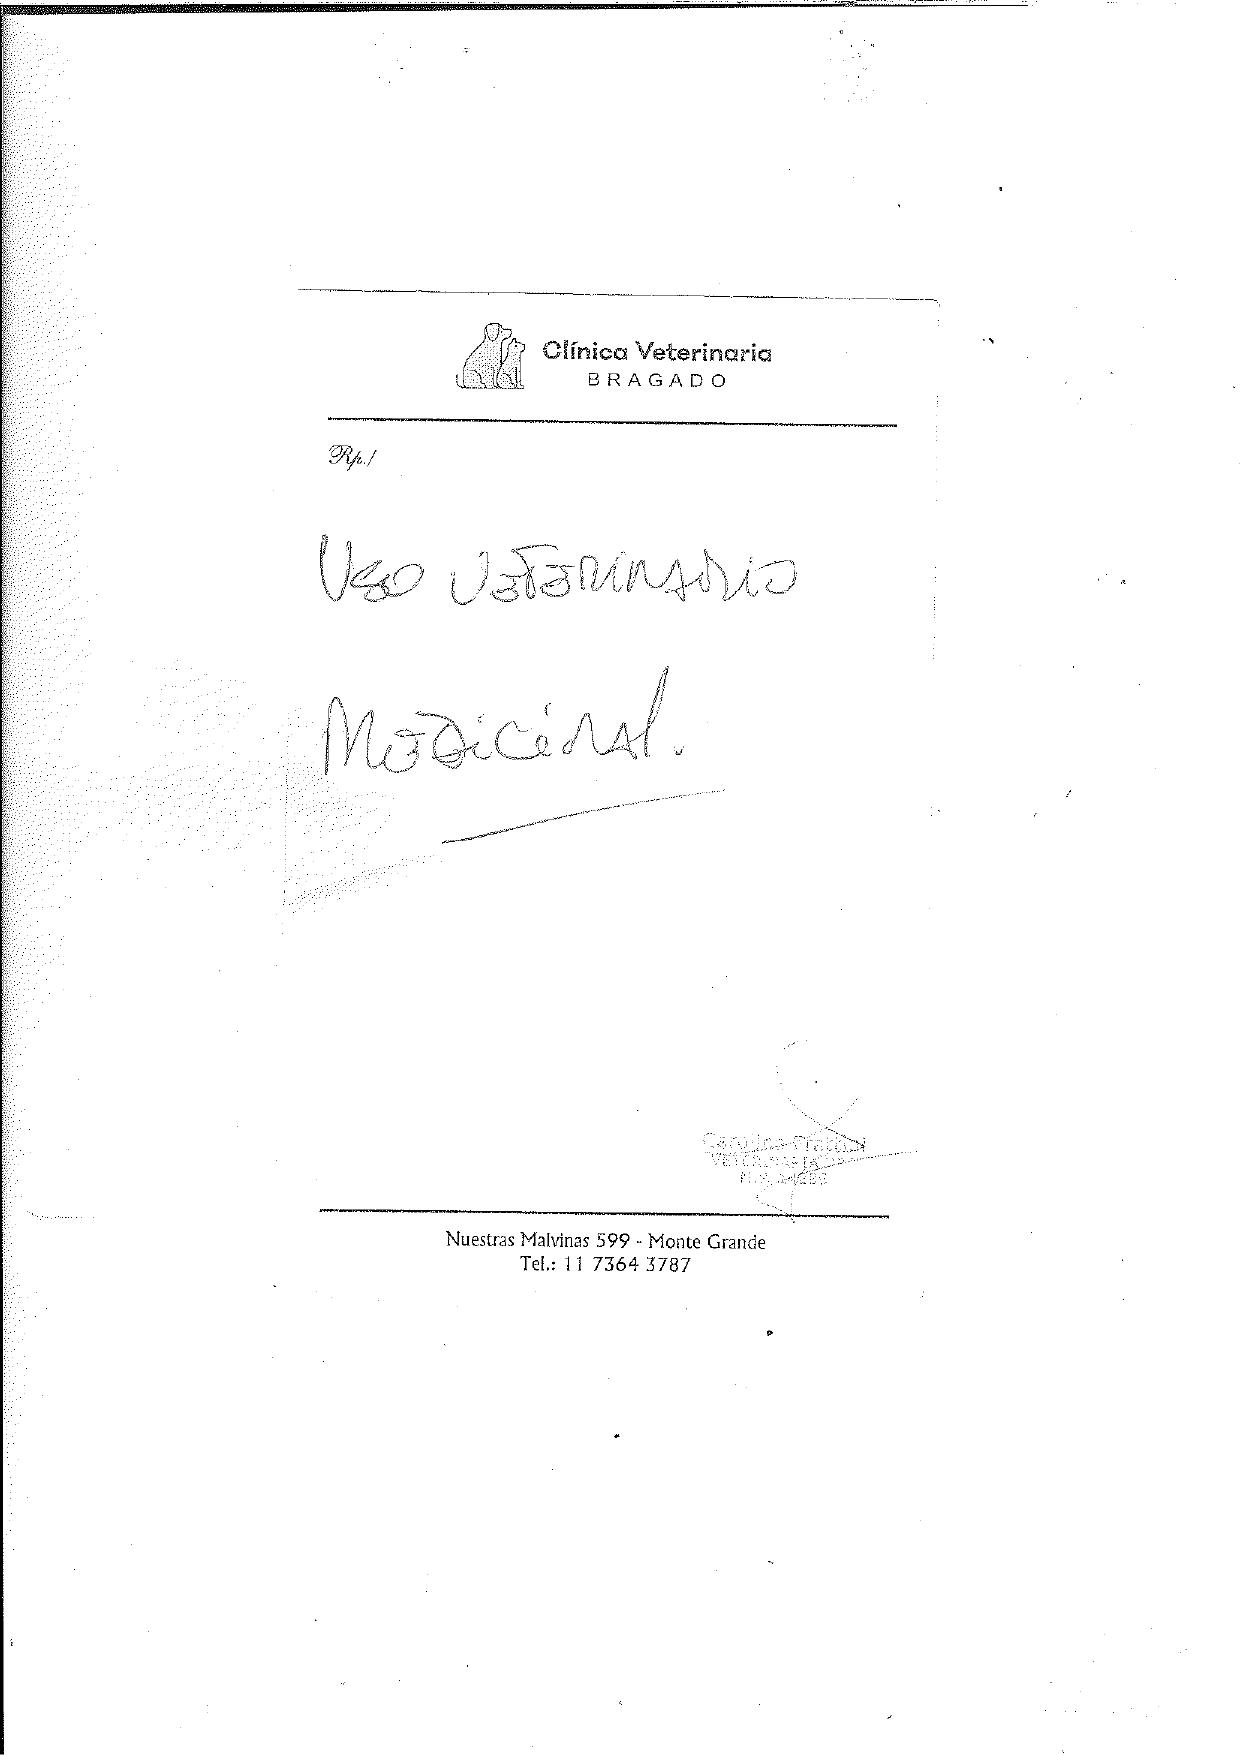 Clínica Veterinaria
BRAGADO
Rp./
USO VETERINARIO
MEDICINAL.
Carolina
VETERINARIA
M.P.
Nuestras Malvinas 599 - Monte Grande
Tel.: 11 7364 3787